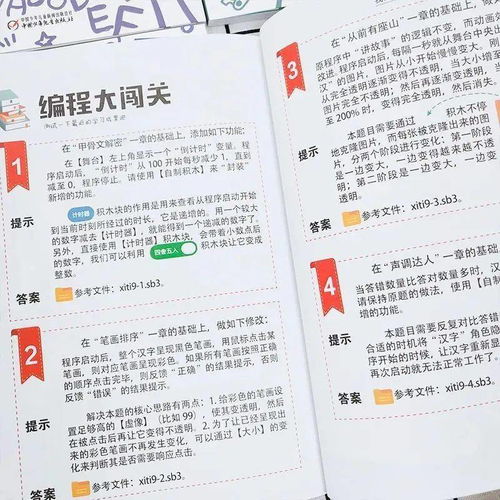 中国少年儿童新闻出版总社
中国少年儿童出版社
编程大闯关
测试一下最近的学习成果吧
1
在“甲骨文解密”一章的基础上，添加如下功能：
在【舞台】左上角显示一个“倒计时”变量。程
序启动后，“倒计时”从100开始每秒减少1，直到
减至0，程序停止。请使用【自制积木】来“封装”
新增的功能。
提示
计时器 积木块的作用是用来查看从程序启动开始
到当前时刻所经过的时长，它是递增的。用一个较大
的数字减去【计时器】，就能得到一个递减的数字了。
另外，直接使用【计时器】积木块，会带着小数点后
的数字，我们可以利用 四舍五入 积木块让它变成
整数。
答案
参考文件：xiti9-1.sb3。
2
在“笔画排序”一章的基础上，做如下修改：
程序启动后，整个汉字呈现黑色笔画，用鼠标点击某
笔画，则对应笔画呈现彩色。如果所有笔画按照正确
的顺序点击完毕，则反馈“正确”的结果提示，否则
反馈“错误”的结果提示。
提示
解决本题的核心思路有两点：1.给彩色的笔画设
置足够高的【虚像】（比如99），使其变透明，然后
在被点击后再让它变得不透明。2.为了让已经呈现出
来的彩色笔画不再发生变化，可以通过【大小】的变
化来判断其是否需要响应点击。
答案
参考文件：xiti9-2.sb3。
3
在“从前有座山”一章的基础上，
原程序中“讲故事”的逻辑不变，而动画
改进。程序启动后，每隔一秒就从舞台中央出
汉”的图片。图片从小开始慢慢变大，同
从完全透明逐渐变得不透明，当大小变
图片完全不透明；然后再逐渐变透明，当
至200%时，变得完全透明，然后消失。
提示
本题需要通过
积木不停
地克隆图片，而每张被克隆出来的图
片，分两个阶段进行变化：第一阶段
是一边变大，一边变得越来越不透
明；第二阶段是一边变大，一边变
透明。
答案
参考文件：xiti9-3.sb3。
4
在“声调达人”一章的基础上，
当答错数量比答对数量多时，汉
请保持原题的做法，使用【自制
增的功能。
提示
本题目需要反复对比答错
合适的时机将“汉字”角色隐
序开始的时候，让汉字重新显
再次启动就无法正常工作了。
答案
参考文件：xiti9-4.sb3。